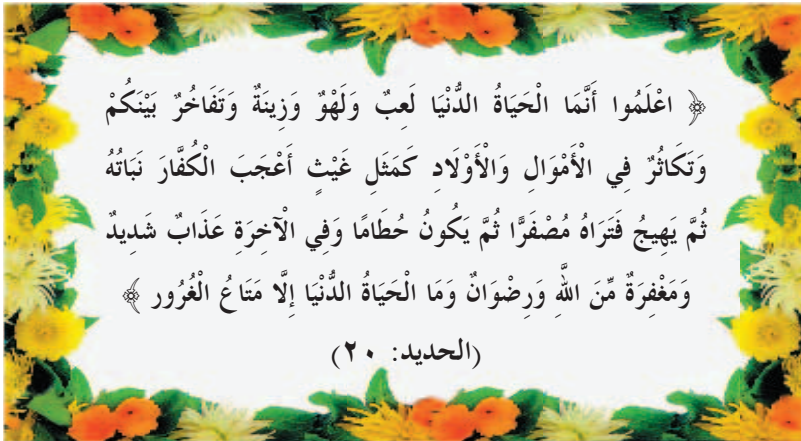 ﴿ اعْلَمُوا أَنَّمَا الْحَيَاةُ الدُّنْيَا لَعِبٌ وَلَهْوٌ وَزِينَةٌ وَتَفَاخُرٌ بَيْنَكُمْ
وَتَكَاثُرٌ فِي الْأَمْوَالِ وَالْأَوْلَادِ كَمَثَلِ غَيْثٍ أَعْجَبَ الْكُفَّارَ نَبَاتُهُ
ثُمَّ يَهِيجُ فَتَرَاهُ مُصْفَرًّا ثُمَّ يَكُونُ حُطَامًا وَفِي الْآخِرَةِ عَذَابٌ شَدِيدٌ
وَمَغْفِرَةٌ مِّنَ اللَّهِ وَرِضْوَانٌ وَمَا الْحَيَاةُ الدُّنْيَا إِلَّا مَتَاعُ الْغُرُورِ ﴾
(الحديد: ٢٠)